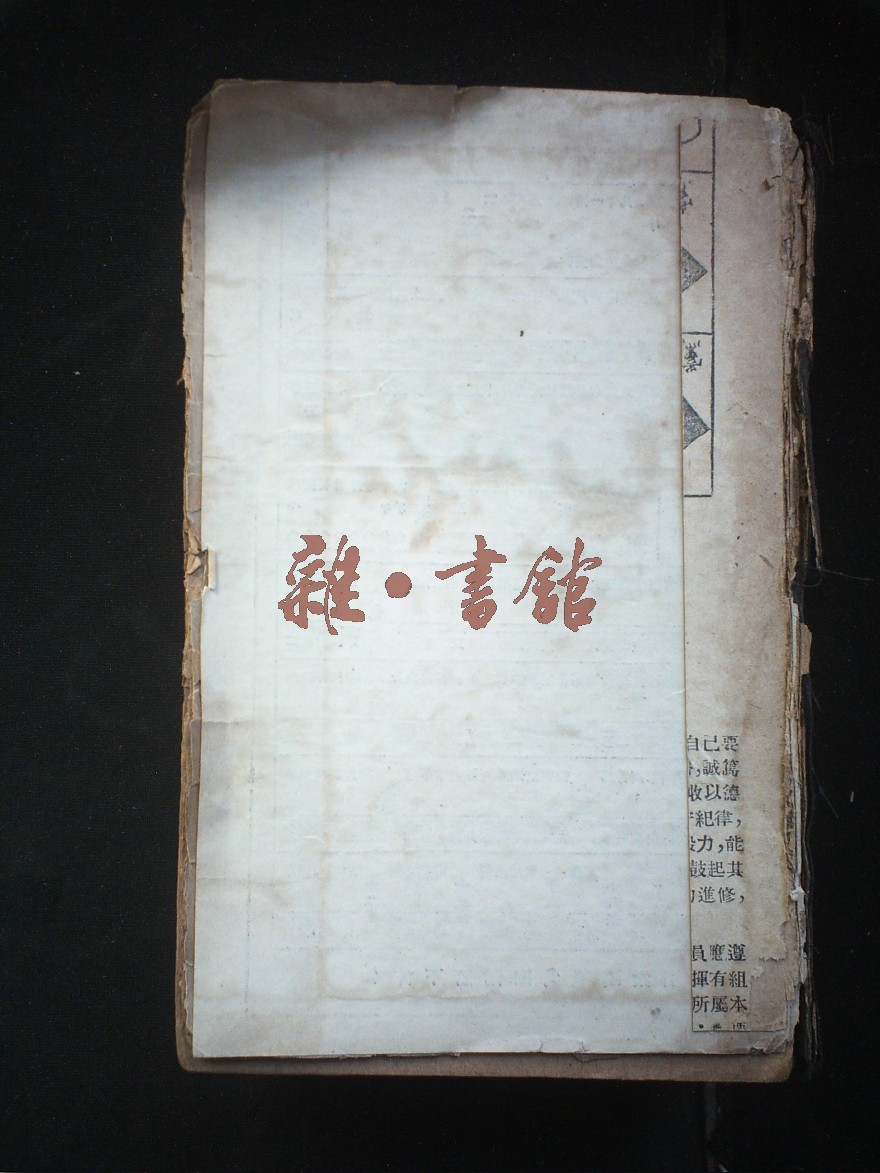 雜•書館
自己要
,誠篤
收以德
紀律,
力,能
鼓起其
進修,
員應遵
揮有組
所屬本